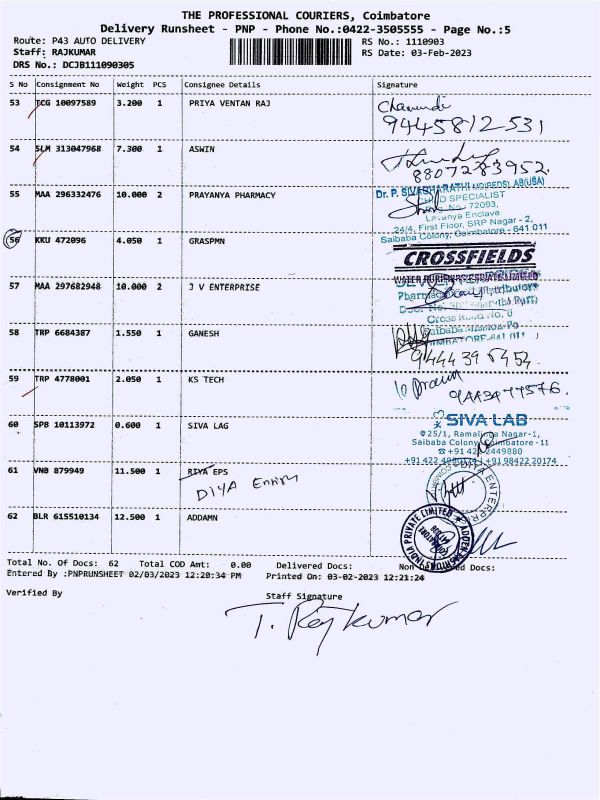 THE PROFESSIONAL COURIERS, Coimbatore
Delivery Runsheet - PNP - Phone No.:0422-3505555 - Page No.:5
Route: P43 AUTO DELIVERY
RS No.: 1110903
Staff: RAJKUMAR
RS Date: 03-Feb-2023
DRS No.: DCJB111090305
S No Consignment No Weight PCS Consignee Details Signature
53 TCG 10097589 3.200 1 PRIYA VENTAN RAJ
9445812531
54 SLM 313047968 7.300 1 ASWIN
8807283952
55 MAA 296332476 10.000 2 PRAYANYA PHARMACY
Dr. P. SIVABHARATHI
SPECIALIST
No. 72093,
Lavanya Enclave
24/4, First Floor, SRP Nagar - 2,
Saibaba Colony, Coimbatore - 641 011
56 KKU 472096 4.050 1 GRASPMN
CROSSFIELDS
57 MAA 297682948 10.000 2 J V ENTERPRISE
58 TRP 6684387 1.550 1 GANESH
59 TRP 4778001 2.050 1 KS TECH
60 SPB 10113972 0.600 1 SIVA LAG
SIVA LAB
25/1, Ramalinga Nagar-1,
Saibaba Colony, Coimbatore -11
61 VNB 879949 11.500 1 RIYA EPS
DIYA
62 BLR 615510134 12.500 1 ADDAMN
Total No. Of Docs: 62 Total COD Amt: 0.00 Delivered Docs: Docs:
Entered By :PNPRUNSHEET 02/03/2023 12:20:34 PM Printed On: 03-02-2023 12:21:24
Verified By
Staff Signature
T. Rajkumar